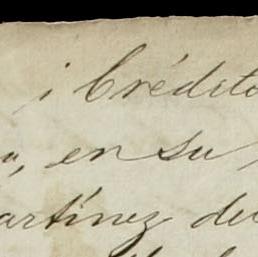 i Crédito
", en su
artínez de